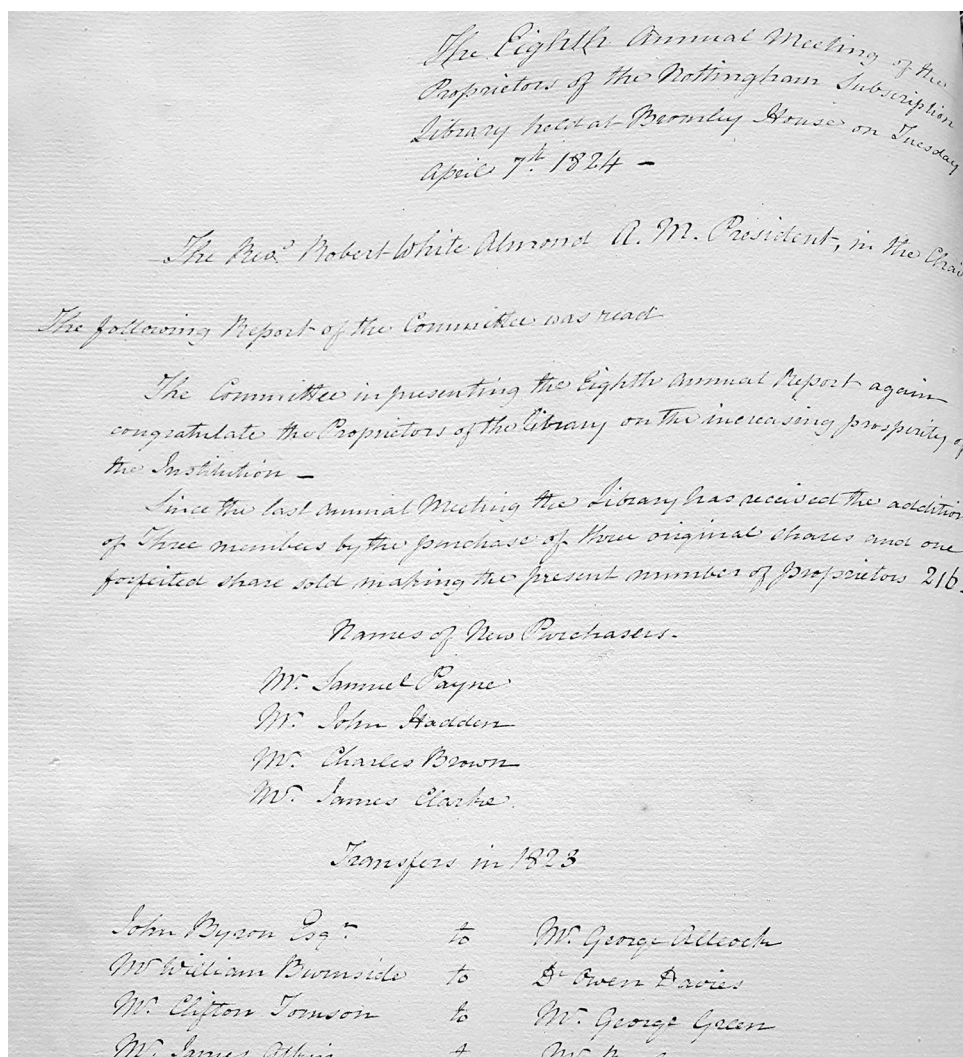 The Eighth Annual Meeting of the
Proprietors of the Nottingham Subscription
Library held at Bromley House on Tuesday
April 7th. 1824 –
The Revd. Robert White Almond A. M. President, in the Chair
The following Report of the Committee was read
The Committee in presenting the Eighth Annual Report again
congratulate the Proprietors of the Library on the increasing prosperity of
the Institution –
Since the last annual Meeting the Library has received the addition
of Three members by the purchase of three original shares and one
forfeited share sold making the present number of proprietors 216.
Names of New Purchasers.
Mr. Samuel Payne
Mr. John Hadden
Mr. Charles Brown
Mr. James Clarke.
Transfers in 1823
John Byron Esqr. to Mr. George Allcock
Mr William Burnside to Dr Owen Davies
Mr. Clifton Tomson to Mr. George Green
Mr. James to Mr.